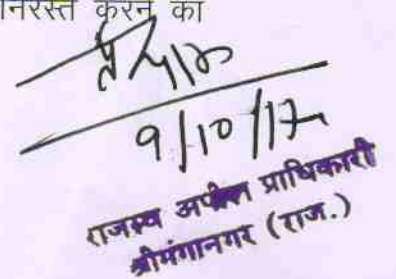 निरस्त करने का
9/10/17
राजस्व अपील प्राधिकारी
श्रीगंगानगर (राज.)